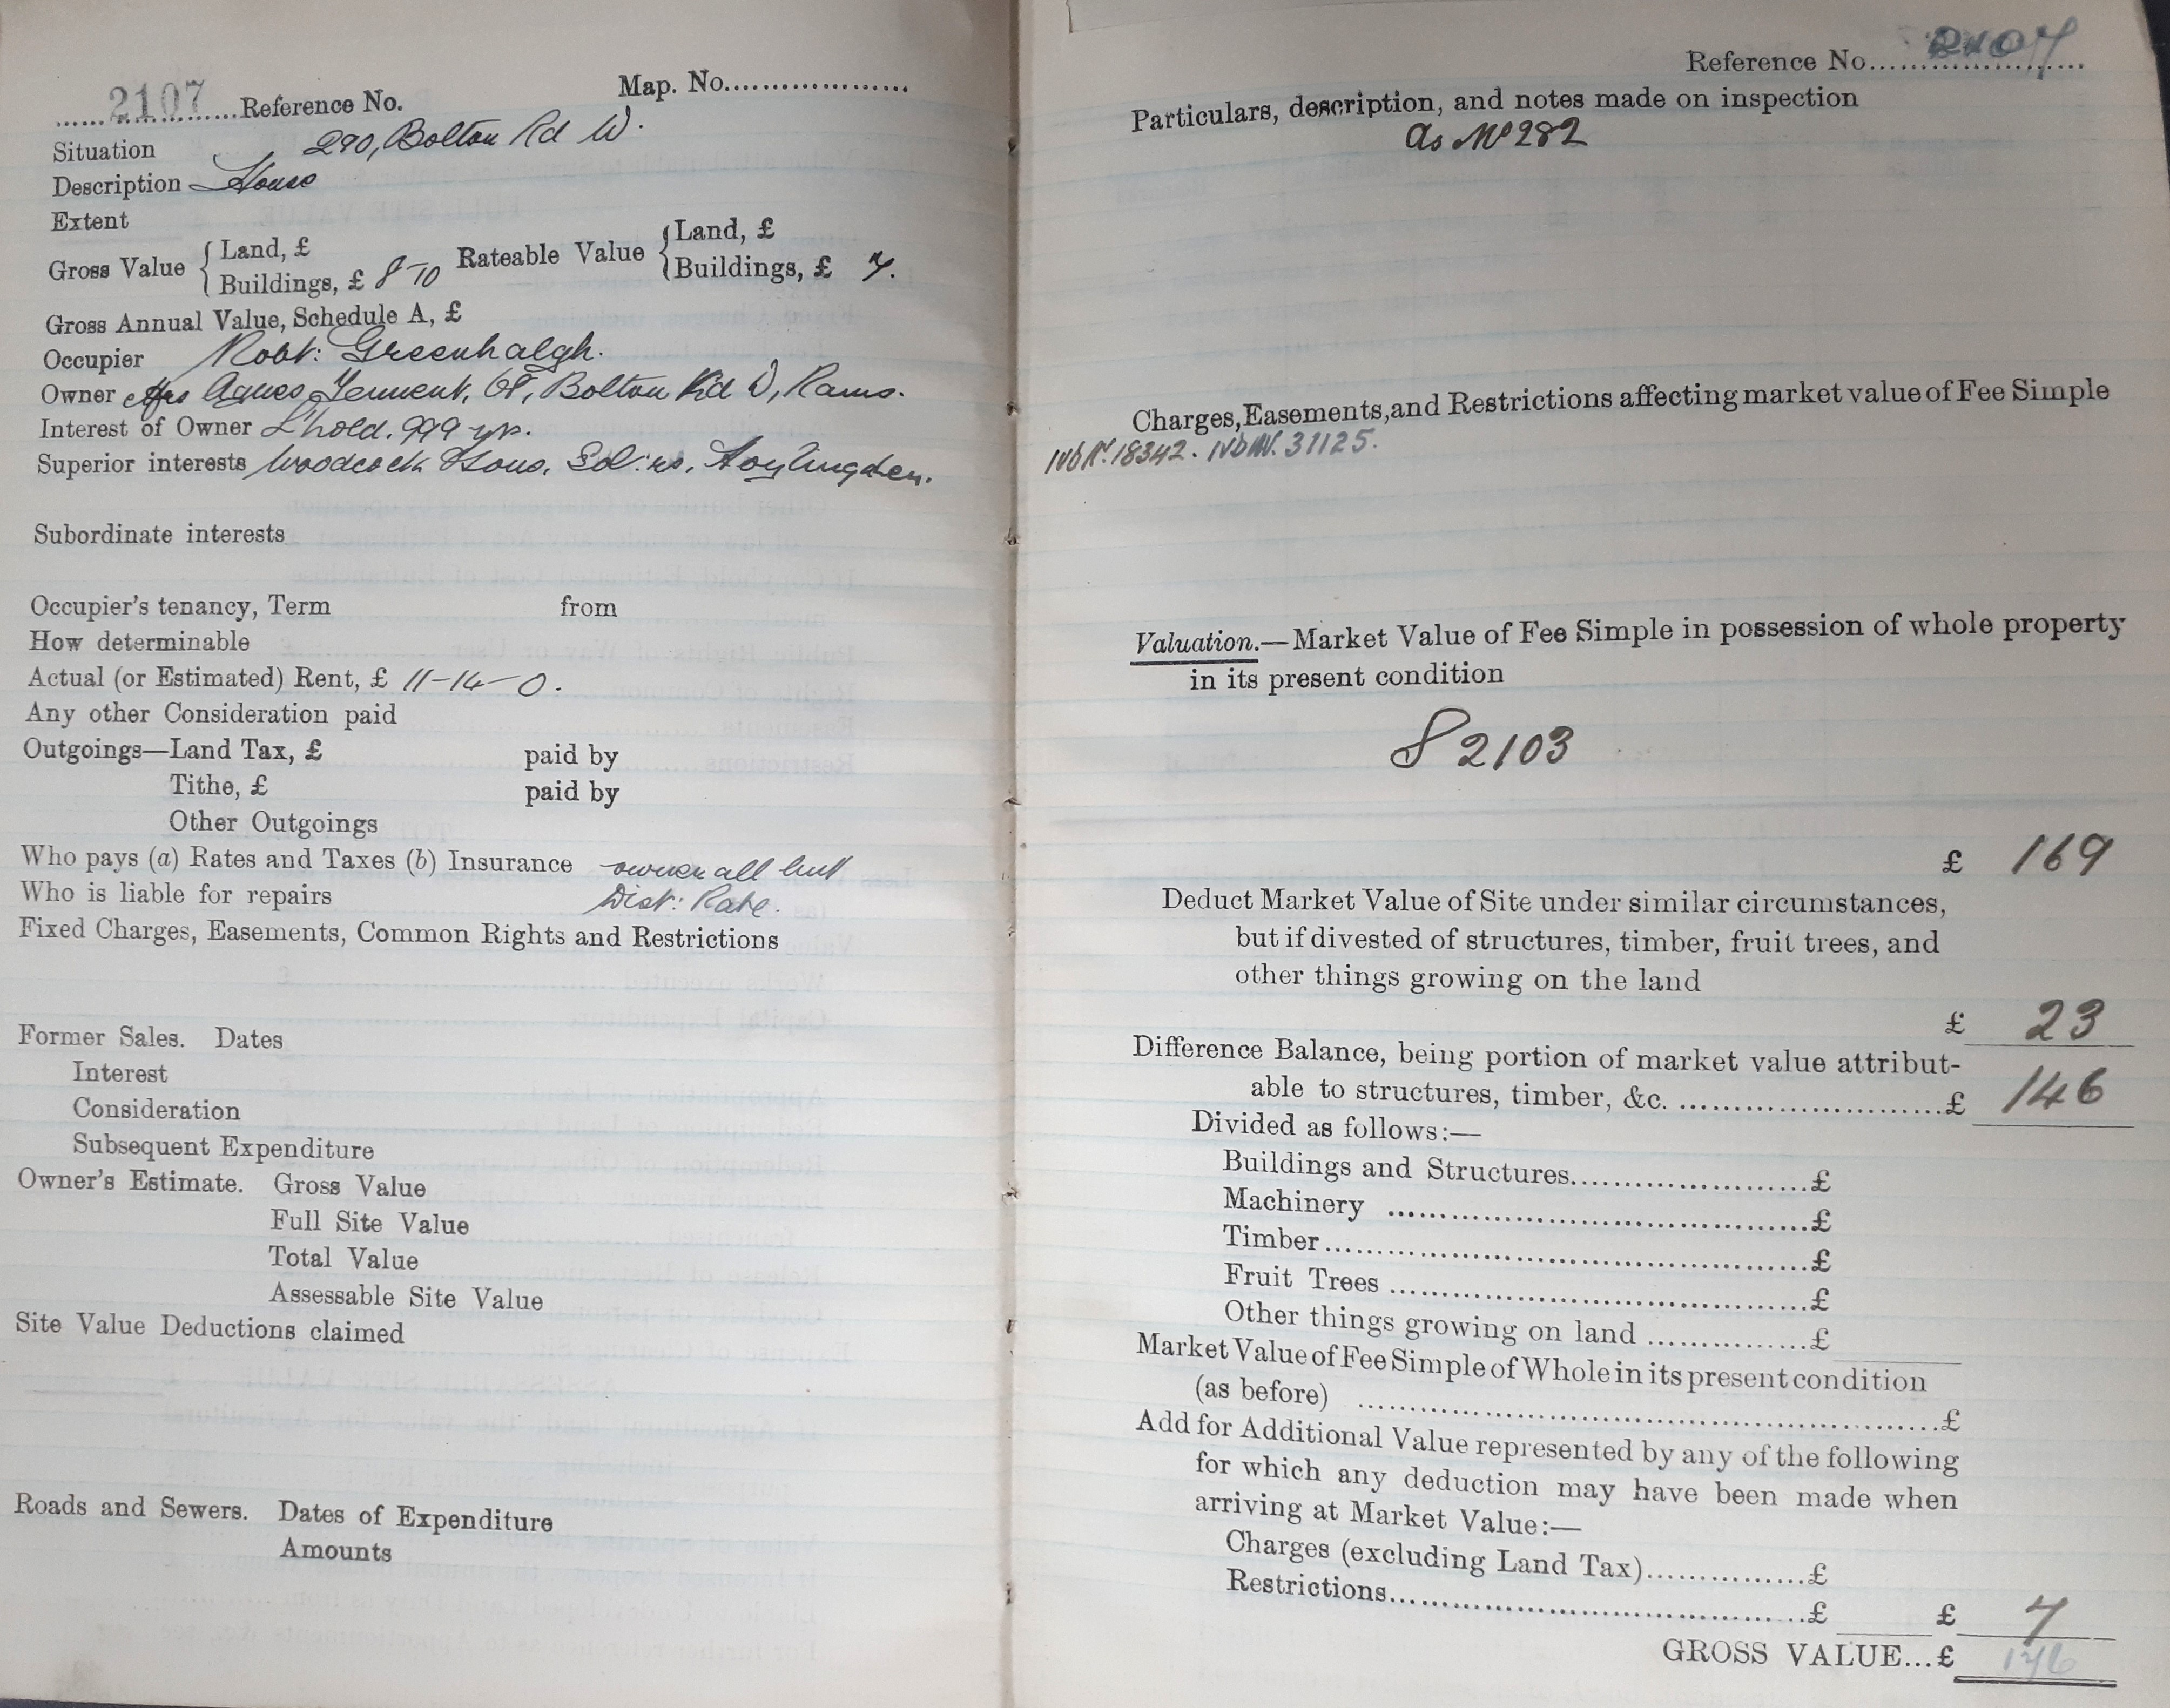 2107 Reference No. Map. No.
Situation 290, Bolton Rd W.
Description House
Extent
Gross Value { Land, £
Buildings, £ 8-10
Rateable Value { Land, £
Buildings, £ 7.
Gross Annual Value, Schedule A, £
Occupier Robt: Greenhalgh.
Owner Mrs Agnes 68, Bolton Rd W, Rams.
Interest of Owner L'hold. 999 yrs.
Superior interests Woodcock & Sons, Sol:rs,
Subordinate interests
Occupier's tenancy, Term from
How determinable
Actual (or Estimated) Rent, £ 11-14-0.
Any other Consideration paid
Outgoings—Land Tax, £ paid by
Tithe, £ paid by
Other Outgoings
Who pays (a) Rates and Taxes (b) Insurance owner all but
Who is liable for repairs Dist: Rate.
Fixed Charges, Easements, Common Rights and Restrictions
Former Sales. Dates
Interest
Consideration
Subsequent Expenditure
Owner's Estimate. Gross Value
Full Site Value
Total Value
Assessable Site Value
Site Value Deductions claimed
Roads and Sewers. Dates of Expenditure
Amounts
Reference No. 2107
Particulars, description, and notes made on inspection
As No 282
Charges, Easements, and Restrictions affecting market value of Fee Simple
18342. 31125.
Valuation.—Market Value of Fee Simple in possession of whole property
in its present condition
2103
£ 169
Deduct Market Value of Site under similar circumstances,
but if divested of structures, timber, fruit trees, and
other things growing on the land
£ 23
Difference Balance, being portion of market value attribut-
able to structures, timber, &c. £ 146
Divided as follows:—
Buildings and Structures £
Machinery £
Timber £
Fruit Trees £
Other things growing on land £
Market Value of Fee Simple of Whole in its present condition
(as before) £
Add for Additional Value represented by any of the following
for which any deduction may have been made when
arriving at Market Value:—
Charges (excluding Land Tax) £
Restrictions £ £ 7
GROSS VALUE... £ 176